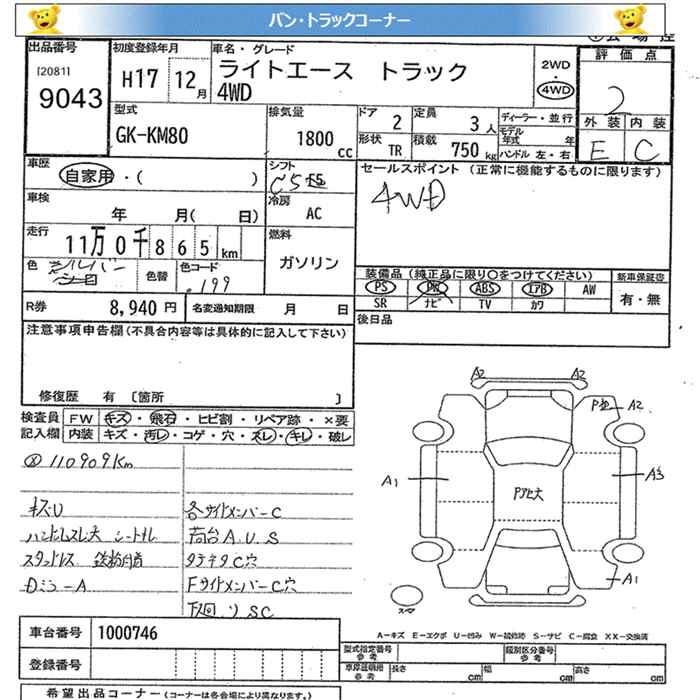 バン・トラックコーナー
出品番号 初度登録年月 車名・グレード
[2081] 9043 H17 12月 ライトエース トラック 4WD
2WD ・ 4WD
評価点 2
外装 内装
E C
型式 排気量 ドア 2 定員 3人 ディーラー・並行
GK-KM80 1800cc 形状 TR 積載 750kg モデル年式 年
ハンドル 左・右
車歴 自家用・( ) シフト C5
セールスポイント (正常に機能するものに限ります)
4WD
車検 年 月( 日) 冷房 AC
走行 11万0千865km 燃料 ガソリン
色 シルバー 色替 色コード 199
装備品 (純正品に限り○をつけてください) 新車保証書
PS PW ABS エアB AW 有・無
SR ナビ TV カワ
R券 8,940円 名変通知期限 月 日
後日品
注意事項申告欄(不具合内容等は具体的に記入して下さい)
修復歴 有 [箇所 ]
検査員 FW キズ・飛石・ヒビ割・リペア跡・×要
記入欄 内装 キズ・汚レ・コゲ・穴・スレ・キレ・破レ
110909Km
キズU 各サイドメンバーC
ハンドルスレ大 シートキレ 荷台A.U.S
スタッドレス 鉄粉付着 タテキタC穴
Dミラ-A FサイドメンバーC穴
下廻りSC
A2 A2
P凹 A2
A1 A3
Pアセ大
A1
スマ
A-キズ E-エクボ U-凹み W-補修跡 S-サビ C-腐食 XX-交換済
車台番号 1000746
型式指定番号 参考 類別区分番号 参考
登録番号
車庫証明用 参考 長さ cm 幅 cm 高さ cm
希望出品コーナー (コーナーは各会場により異なります。)